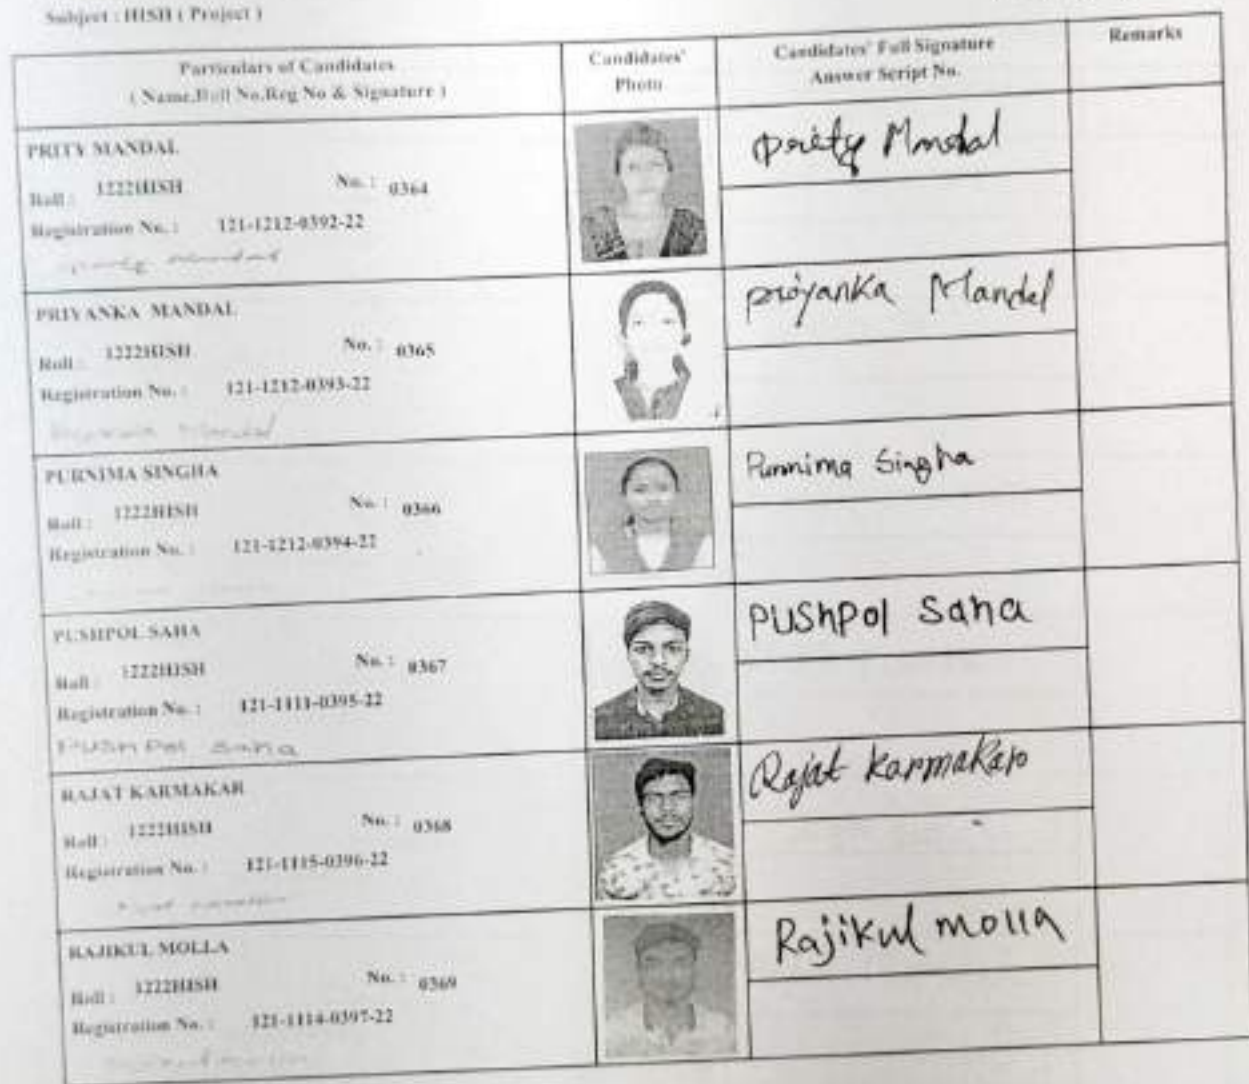 Subject : HISH ( Project )
Particulars of Candidates
( Name,Roll No,Reg No & Signature )
Candidates'
Photo
Candidates' Full Signature
Answer Script No.
Remarks
PRITY MANDAL
Roll : 1222HISH No. : 0364
Registration No. : 121-1212-0392-22
Prity Mandal
PRIYANKA MANDAL
Roll : 1222HISH No. : 0365
Registration No. : 121-1212-0393-22
Mandal
Priyanka Mandal
PURNIMA SINGHA
Roll : 1222HISH No. : 0366
Registration No. : 121-1212-0394-22
Purnima Singha
PUSHPOL SAHA
Roll : 1222HISH No. : 0367
Registration No. : 121-1111-0395-22
PUShPol Saha
PUShPol Saha
RAJAT KARMAKAR
Roll : 1222HISH No. : 0368
Registration No. : 121-1115-0396-22
Rajat Karmakar
RAJIKUL MOLLA
Roll : 1222HISH No. : 0369
Registration No. : 121-1114-0397-22
Rajikul molla